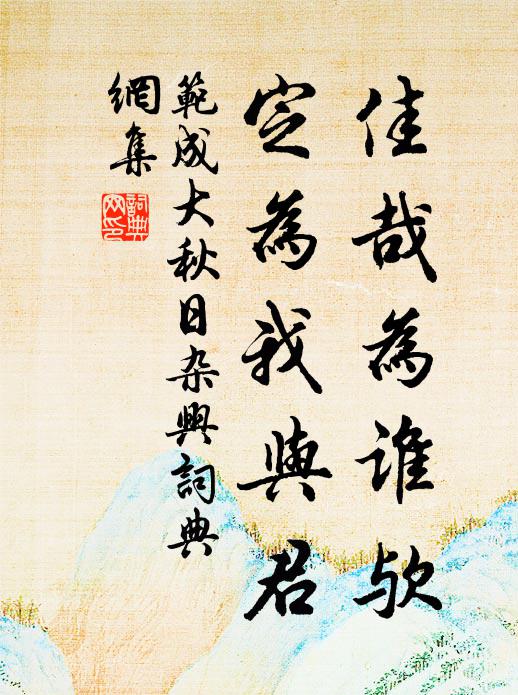 佳哉為誰欤
定為我與君
範成大秋日杂興詞典
網集
詞典
网印